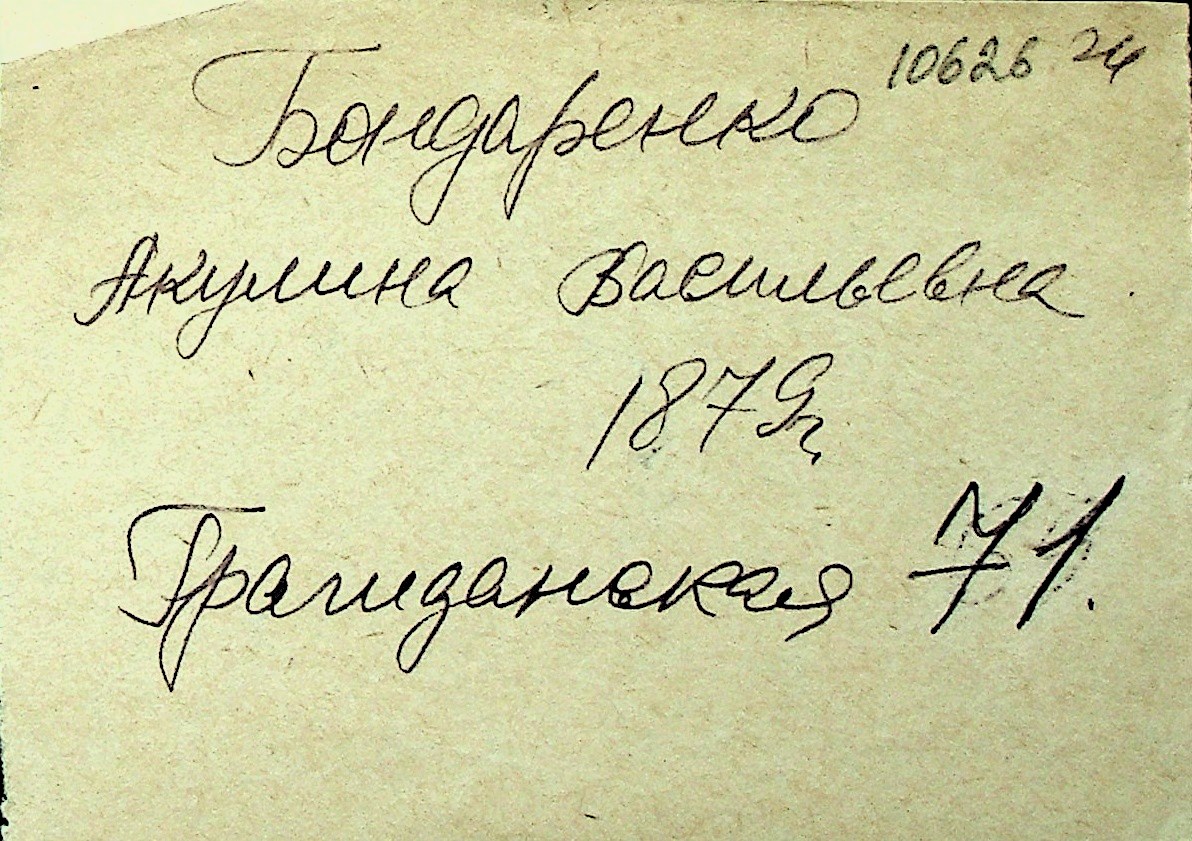 10626 24
Бондаренко
Акулина Васильевна
1879 г.
Гражданская 71.